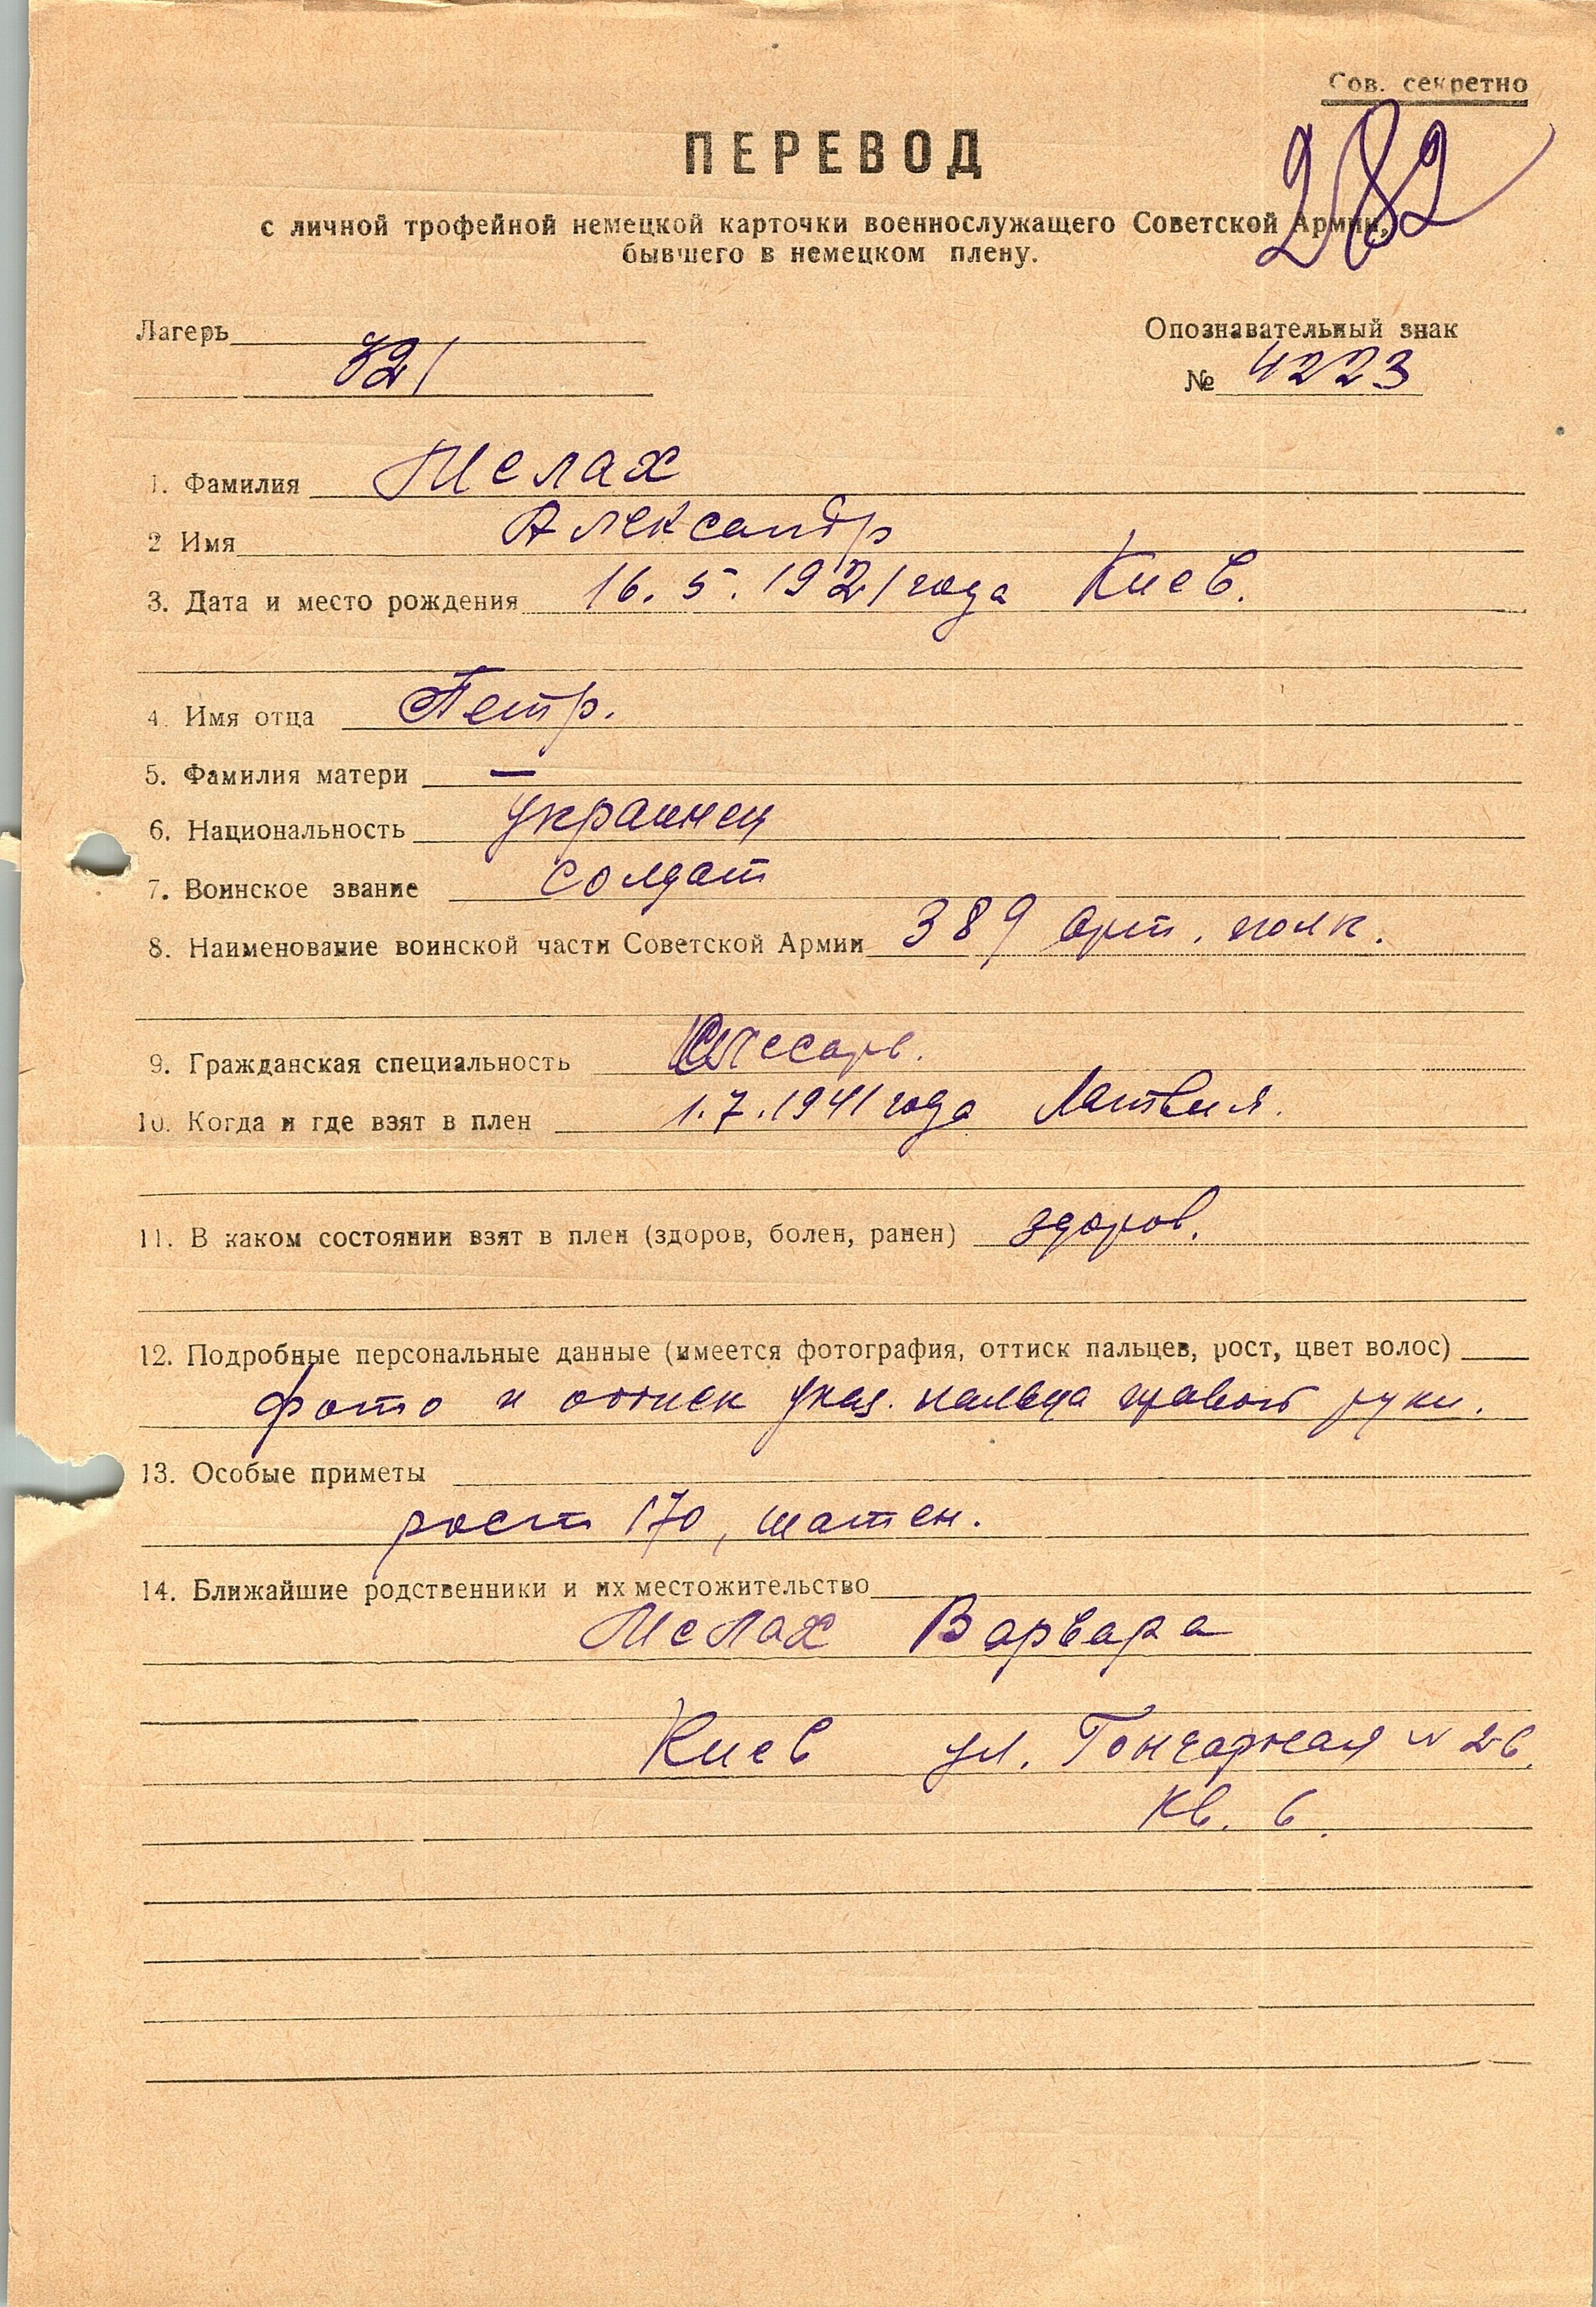 Сов. секретно
282
ПЕРЕВОД
с личной трофейной немецкой карточки военнослужащего Советской Армии,
бывшего в немецком плену.
Лагерь Опознавательный знак
321 № 4223
1. Фамилия Шелах
2 Имя Александр
3. Дата и место рождения 16. 5. 1921 года Киев.
4. Имя отца Петр.
5. Фамилия матери —
6. Национальность украинец
7. Воинское звание солдат
8. Наименование воинской части Советской Армии 389 арт. полк.
9. Гражданская специальность Слесарь.
10. Когда и где взят в плен 1. 7. 1941 года Латвия.
11. В каком состоянии взят в плен (здоров, болен, ранен) здоров.
12. Подробные персональные данные (имеется фотография, оттиск пальцев, рост, цвет волос)
фото и оттиск указ. пальца правой руки.
13. Особые приметы
рост 170, шатен.
14. Ближайшие родственники и их местожительство
Шелах Варвара
Киев ул. Гончарная № 26.
кв. 6.